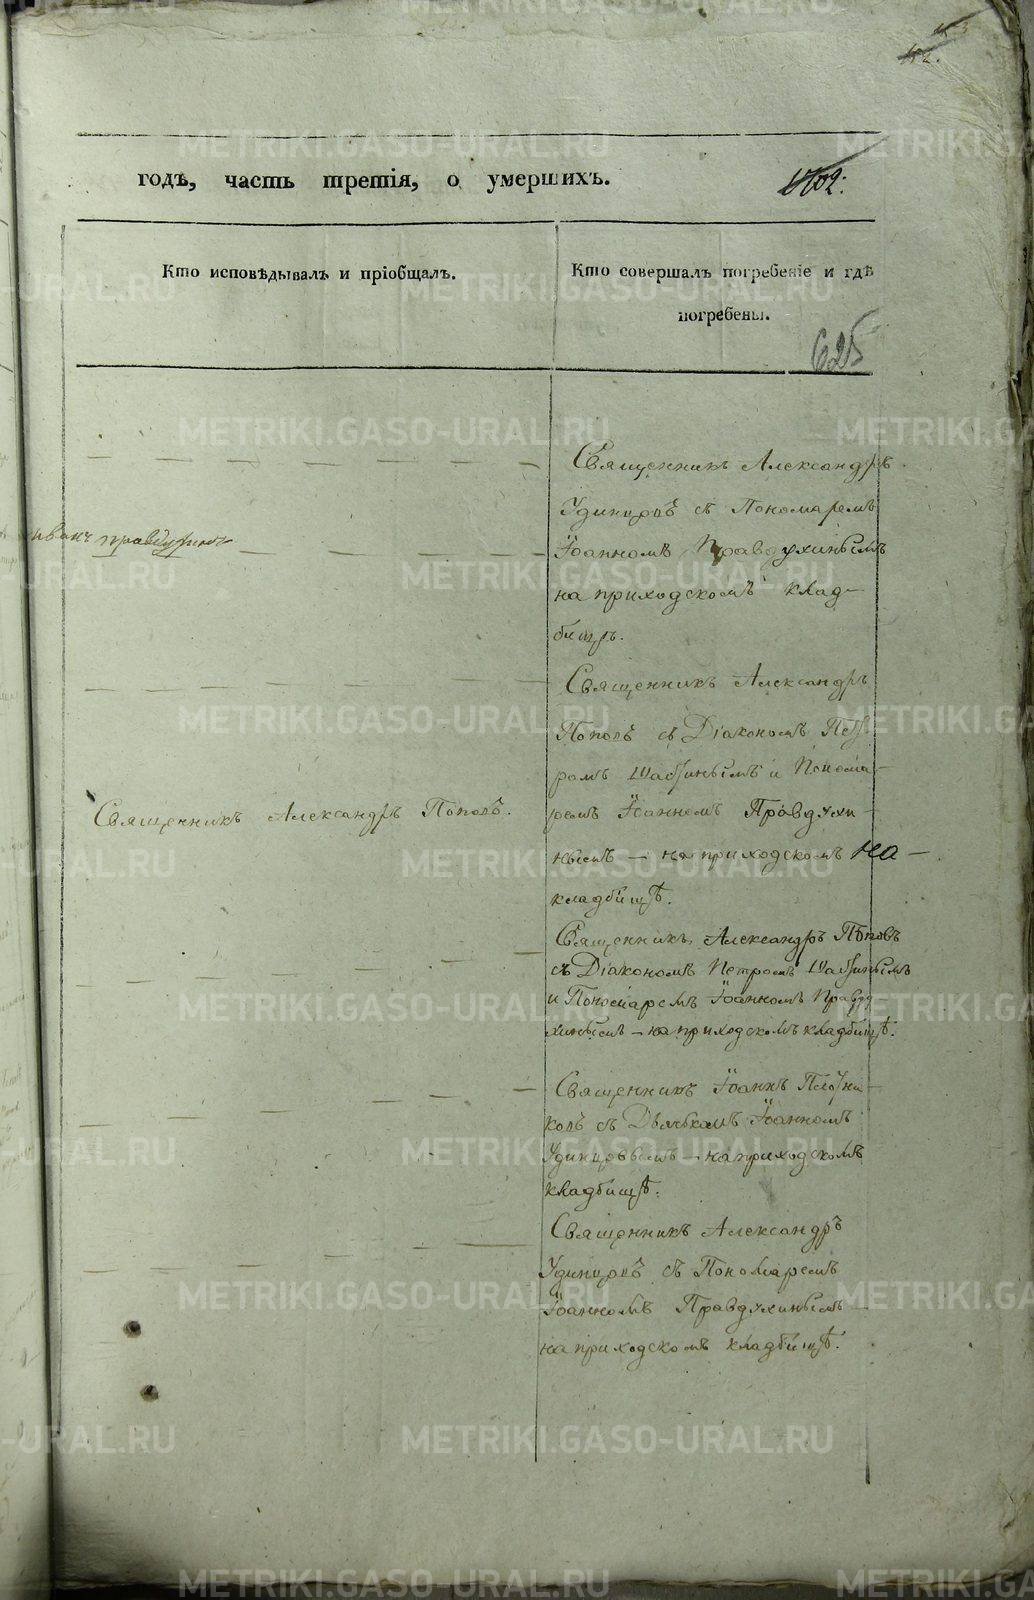 годѣ, часть третія, о умершихъ.
Кто исповѣдывалъ и пріобщалъ.
Кто совершалъ погребеніе и гдѣ
погребены.
625
Священникъ Александръ
Удинцовъ съ Пономаремъ
Іоанномъ Правдухинымъ
на приходскомъ клад-
бищѣ.
Иванъ Правдухинъ
Священникъ Александръ
Поповъ съ Діакономъ Пет-
ромъ Шабунинымъ и Понома-
Священникъ Александръ Поповъ.
ремъ Іоанномъ Правдухи-
нымъ — на приходскомъ на-
кладбищѣ.
Священникъ Александръ Поповъ
съ Діакономъ Петромъ
и Пономаремъ Іоанномъ Правду
хинымъ — на приходскомъ кладбищѣ.
Священникъ Іоаннъ Плотни-
ковъ съ Дьячкомъ Іоанномъ
Удинцовымъ — на приходскомъ
кладбищѣ.
Священникъ Александръ
Удинцовъ съ Пономаремъ
Іоанномъ Правдухинымъ —
на приходскомъ кладбищѣ.
METRIKI.GASO-URAL.RU